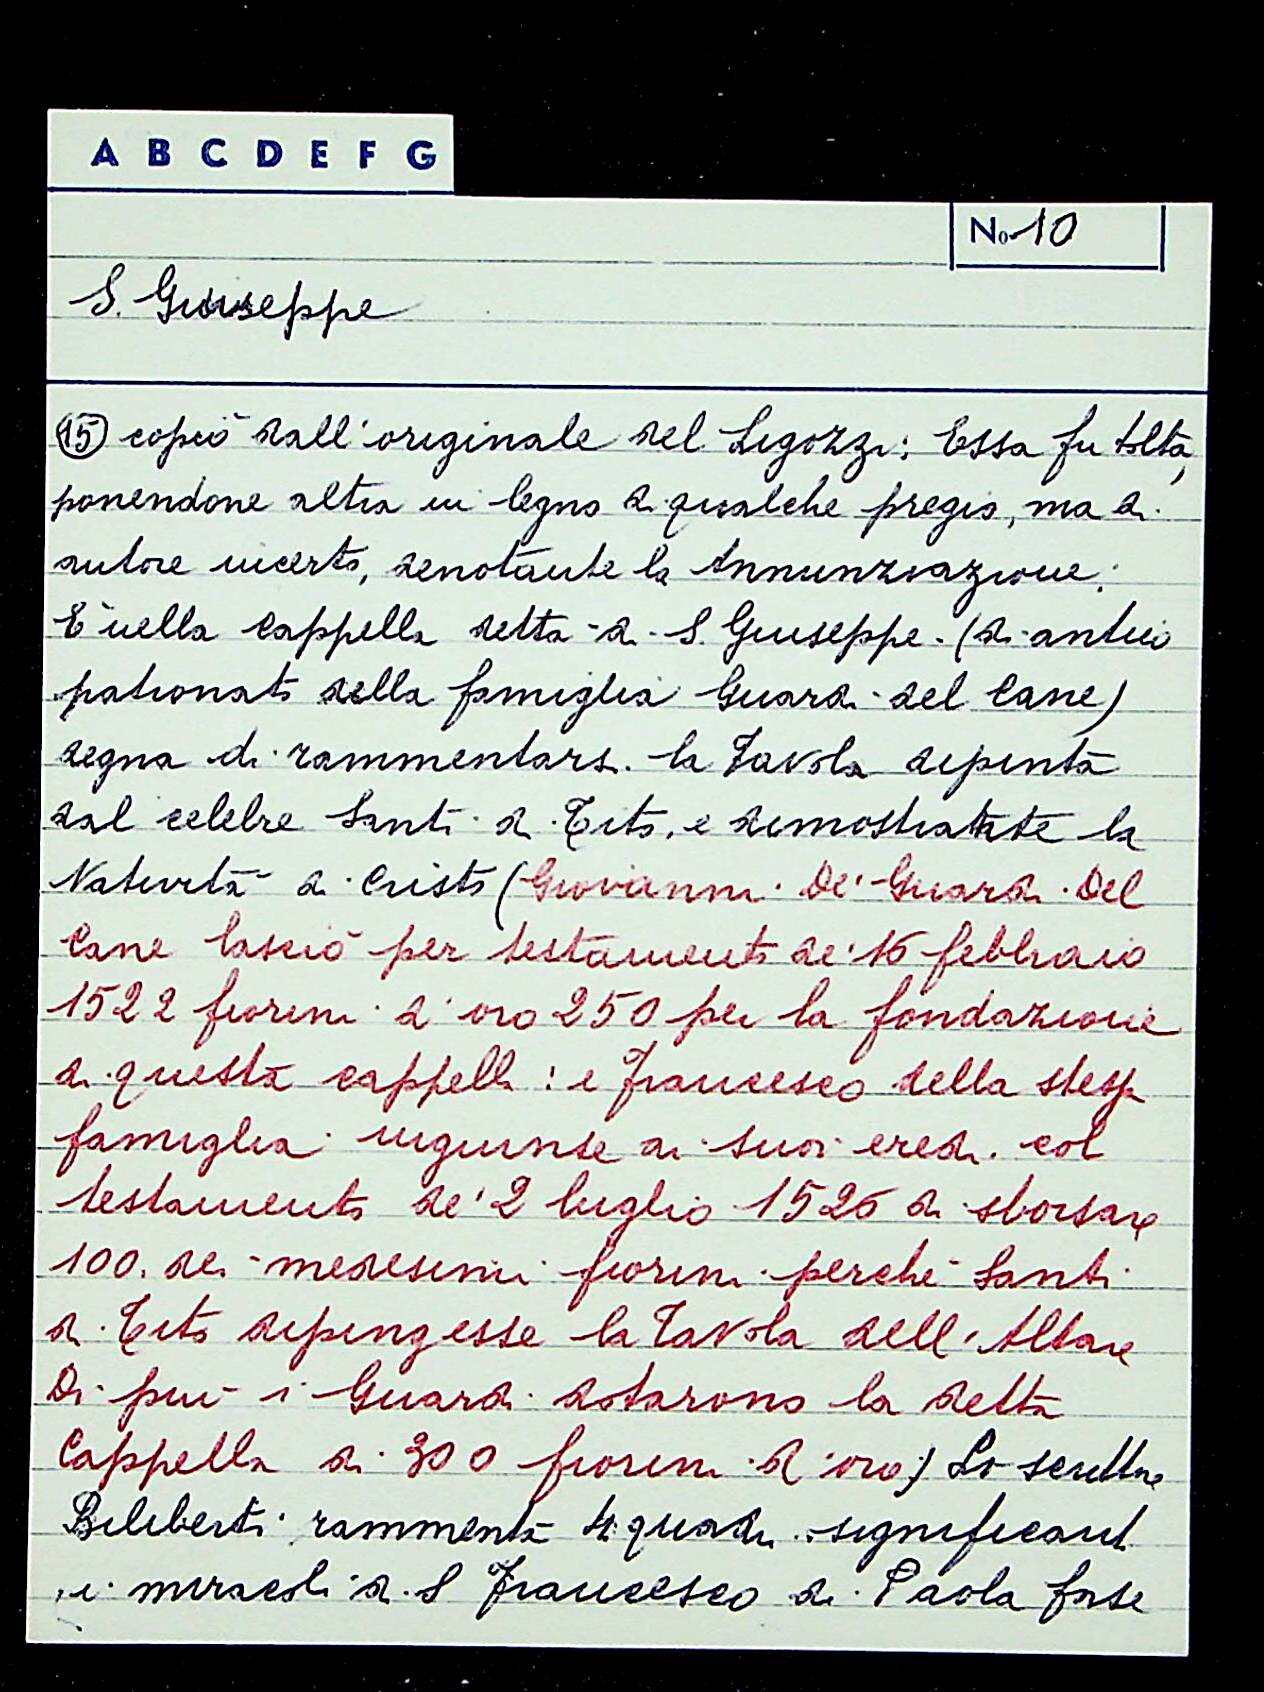 A B C D E F G
No 10
S. Giuseppe
(15) copiò dall'originale del Ligozzi: Essa fu tolta,
ponendone altra in legno di qualche pregio, ma di
autore incerto, denotante la Annunziazione.
È nella cappella detta di S. Giuseppe. (di antico
patronato della famiglia Guardi del Cane)
degna di rammentarsi la Tavola dipinta
dal celebre Santi di Tito, e dimostrante la
Natività di Cristo (Giovanni De' Guardi Del
Cane lasciò per testamento de' 16 febbraio
1522 fiorini d'oro 250 per la fondazione
di questa cappella: e Francesco della stessa
famiglia ingiunse ai suoi eredi col
testamento de' 2 luglio 1526 di sborsare
100. dei medesimi fiorini perché Santi
di Tito dipingesse la Tavola dell'Altare
Di più i Guardi dotarono la detta
Cappella di 300 fiorini d'oro) Lo scrittore
Biliberti rammenta 4 quadri significanti
i miracoli di S Francesco di Paola forse